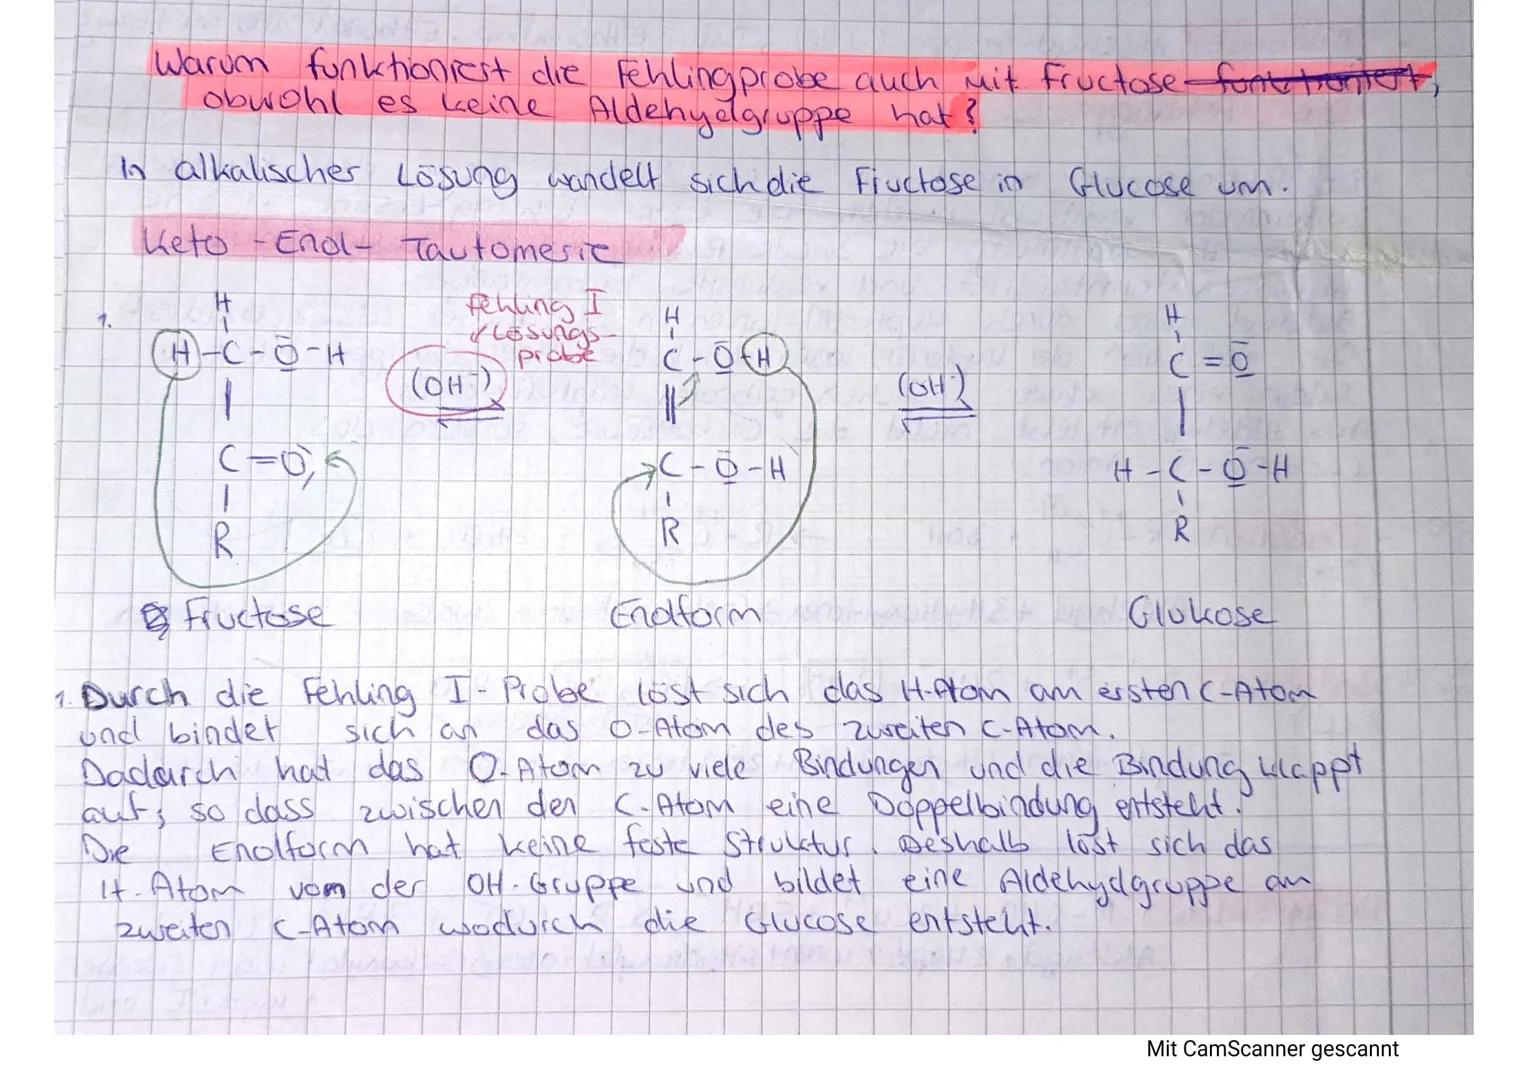 Warum funktioniert die Fehlingprobe auch mit Fructose funktioniert,
obwohl es keine Aldehydgruppe hat?
In alkalischer Lösung wandelt sich die Fructose in Glucose um.
Keto-Enol-Tautomerie
1.
Fehling I
Lösungs-
probe
H
H-C-O-H
(OH⁻)
C=O
R
H
C-O-H
C-O-H
R
(OH⁻)
H
C=O
H-C-O-H
R
Fructose
Enolform
Glukose
1. Durch die Fehling I-Probe löst sich das H-Atom am ersten C-Atom
und bindet sich an das O-Atom des zweiten C-Atom.
Dadurch hat das O-Atom zu viele Bindungen und die Bindung klappt
auf, so dass zwischen den C-Atom eine Doppelbindung entsteht.
Die Enolform hat keine feste Struktur. Deshalb löst sich das
H-Atom vom der OH-Gruppe und bildet eine Aldehydgruppe am
zweiten C-Atom wodurch die Glucose entsteht.
Mit CamScanner gescannt